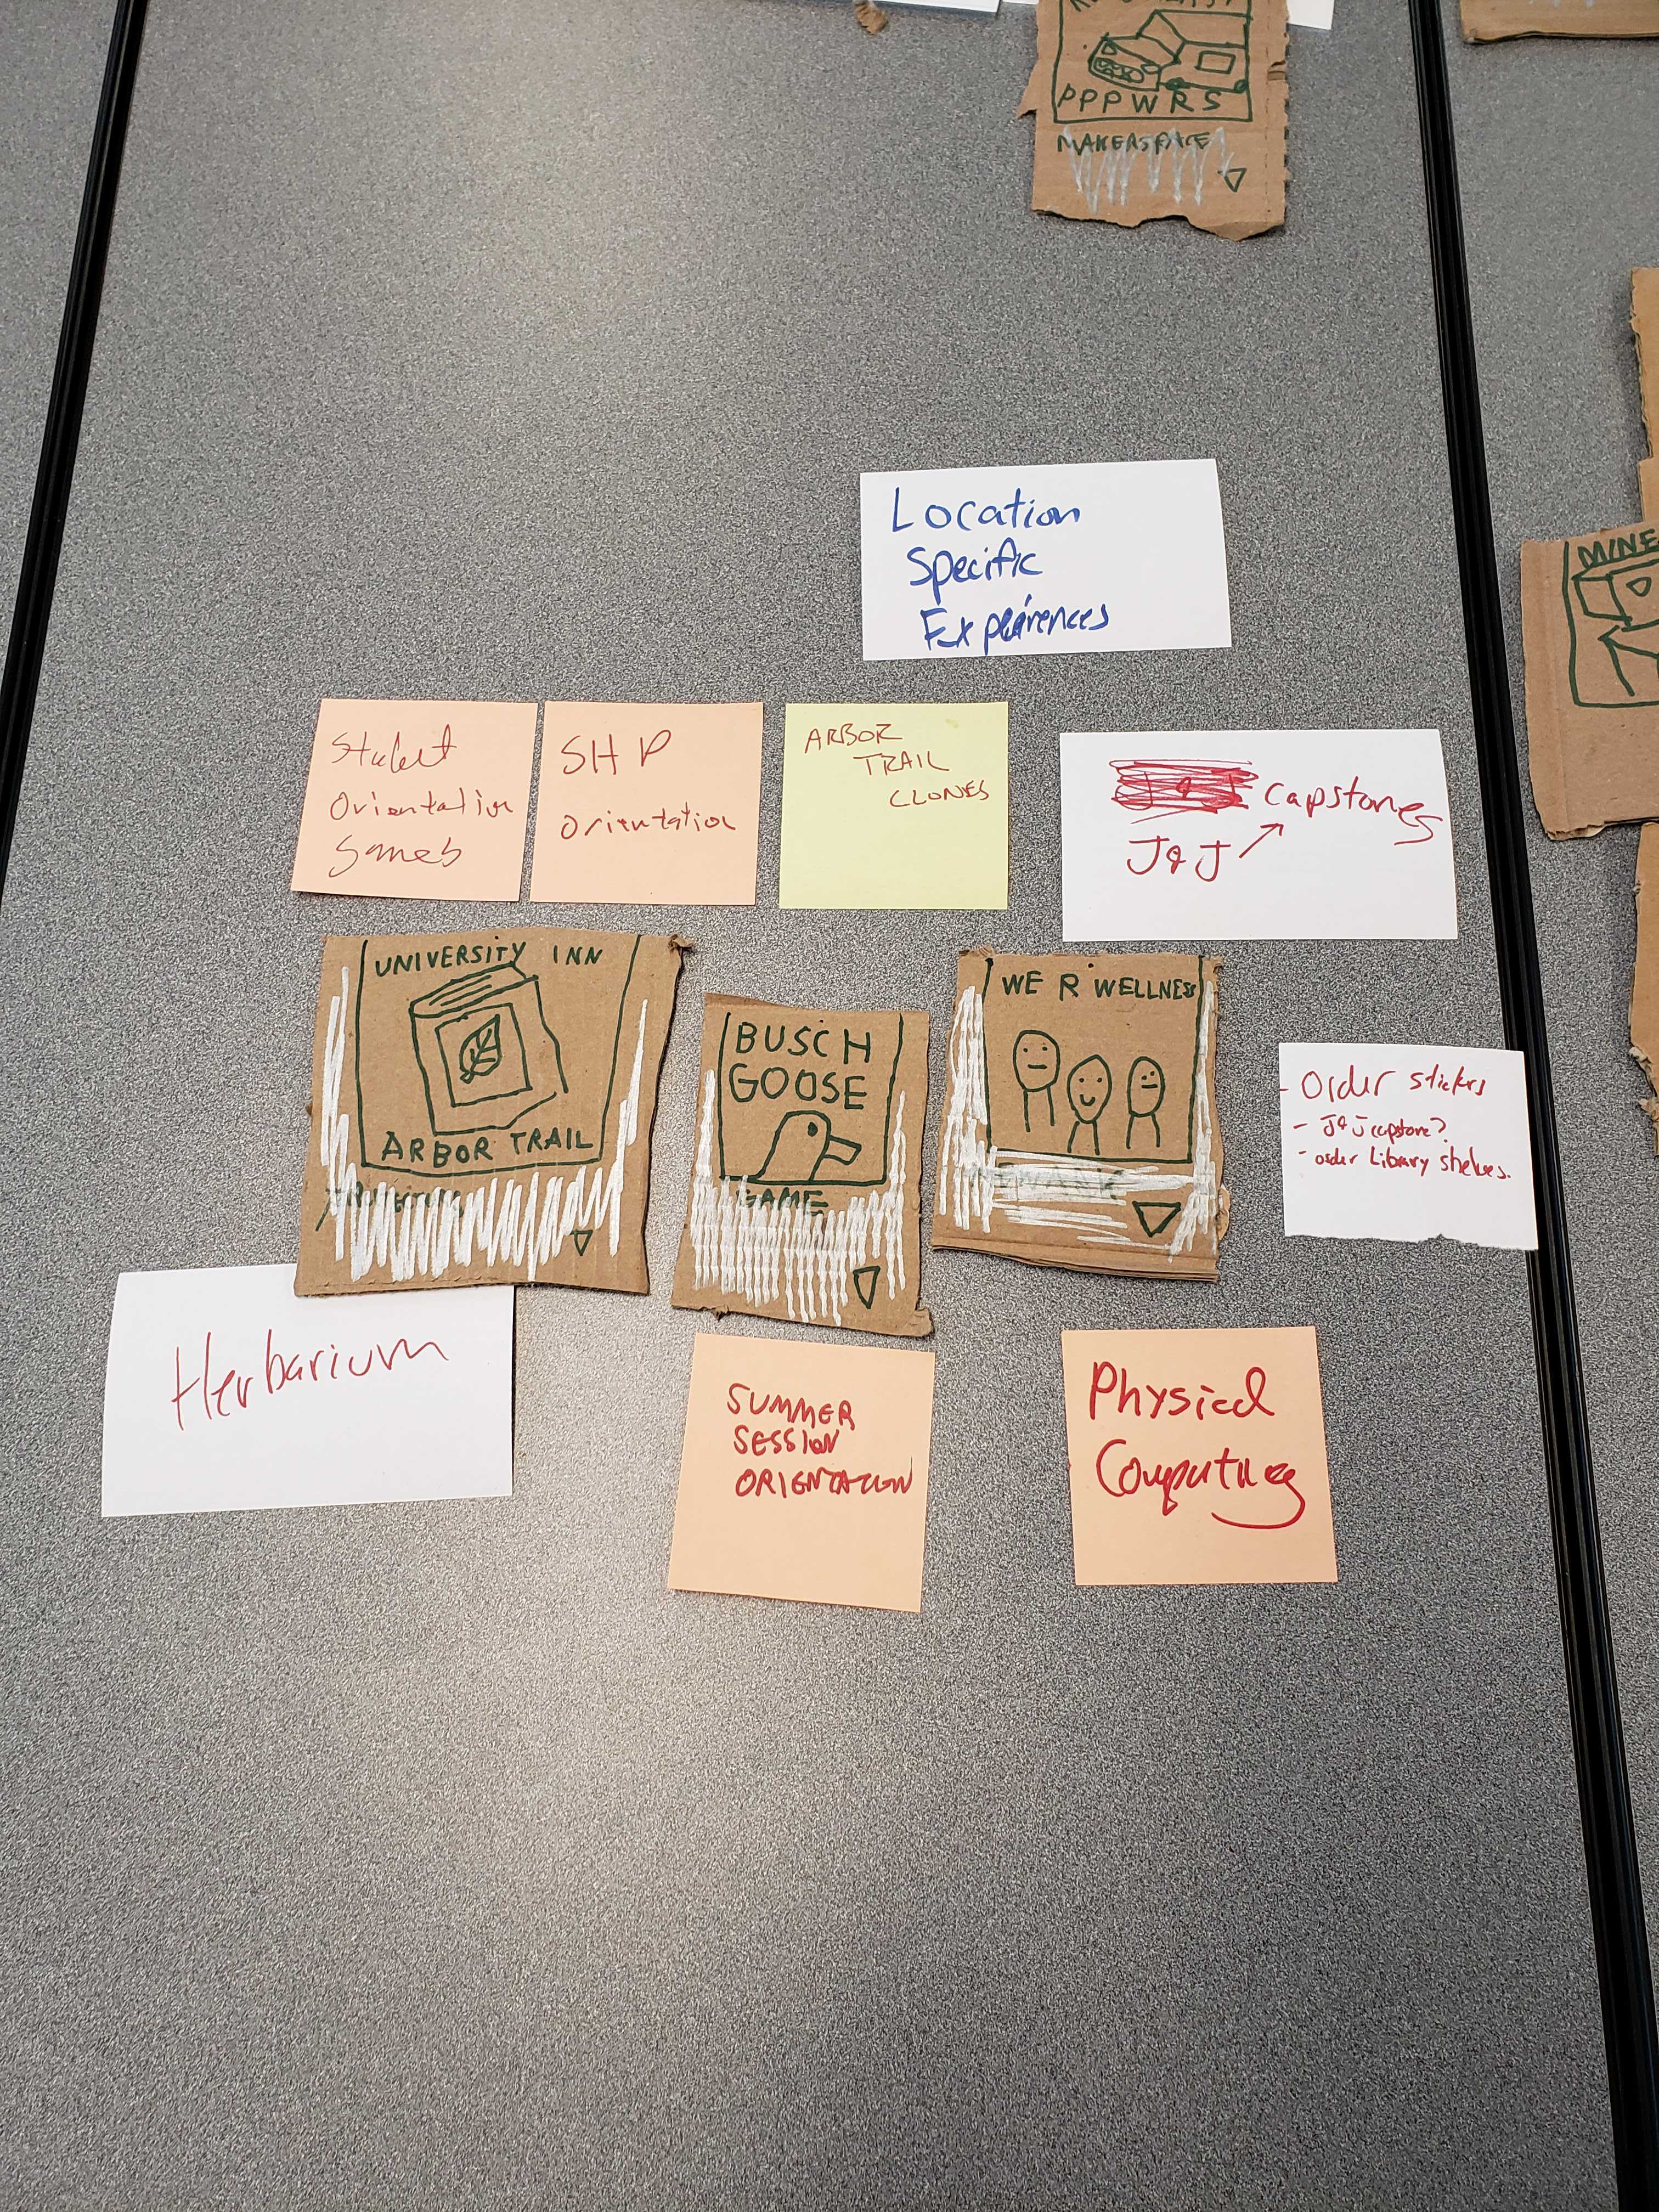 PPPWRS
MAKERSPACE
MINE
Location
Specific
Expeirences
Student
Orientation
Games
SHP
Orientation
ARBOR
TRAIL
CLONES
J&J capstones
J&J
UNIVERSITY INN
ARBOR TRAIL
BUSCH
GOOSE
GAME
WE R WELLNESS
- Order stickers
- J&J capstone?
- order Library shelves.
Herbarium
SUMMER
SESSION
ORIENTATION
Physical
Computing